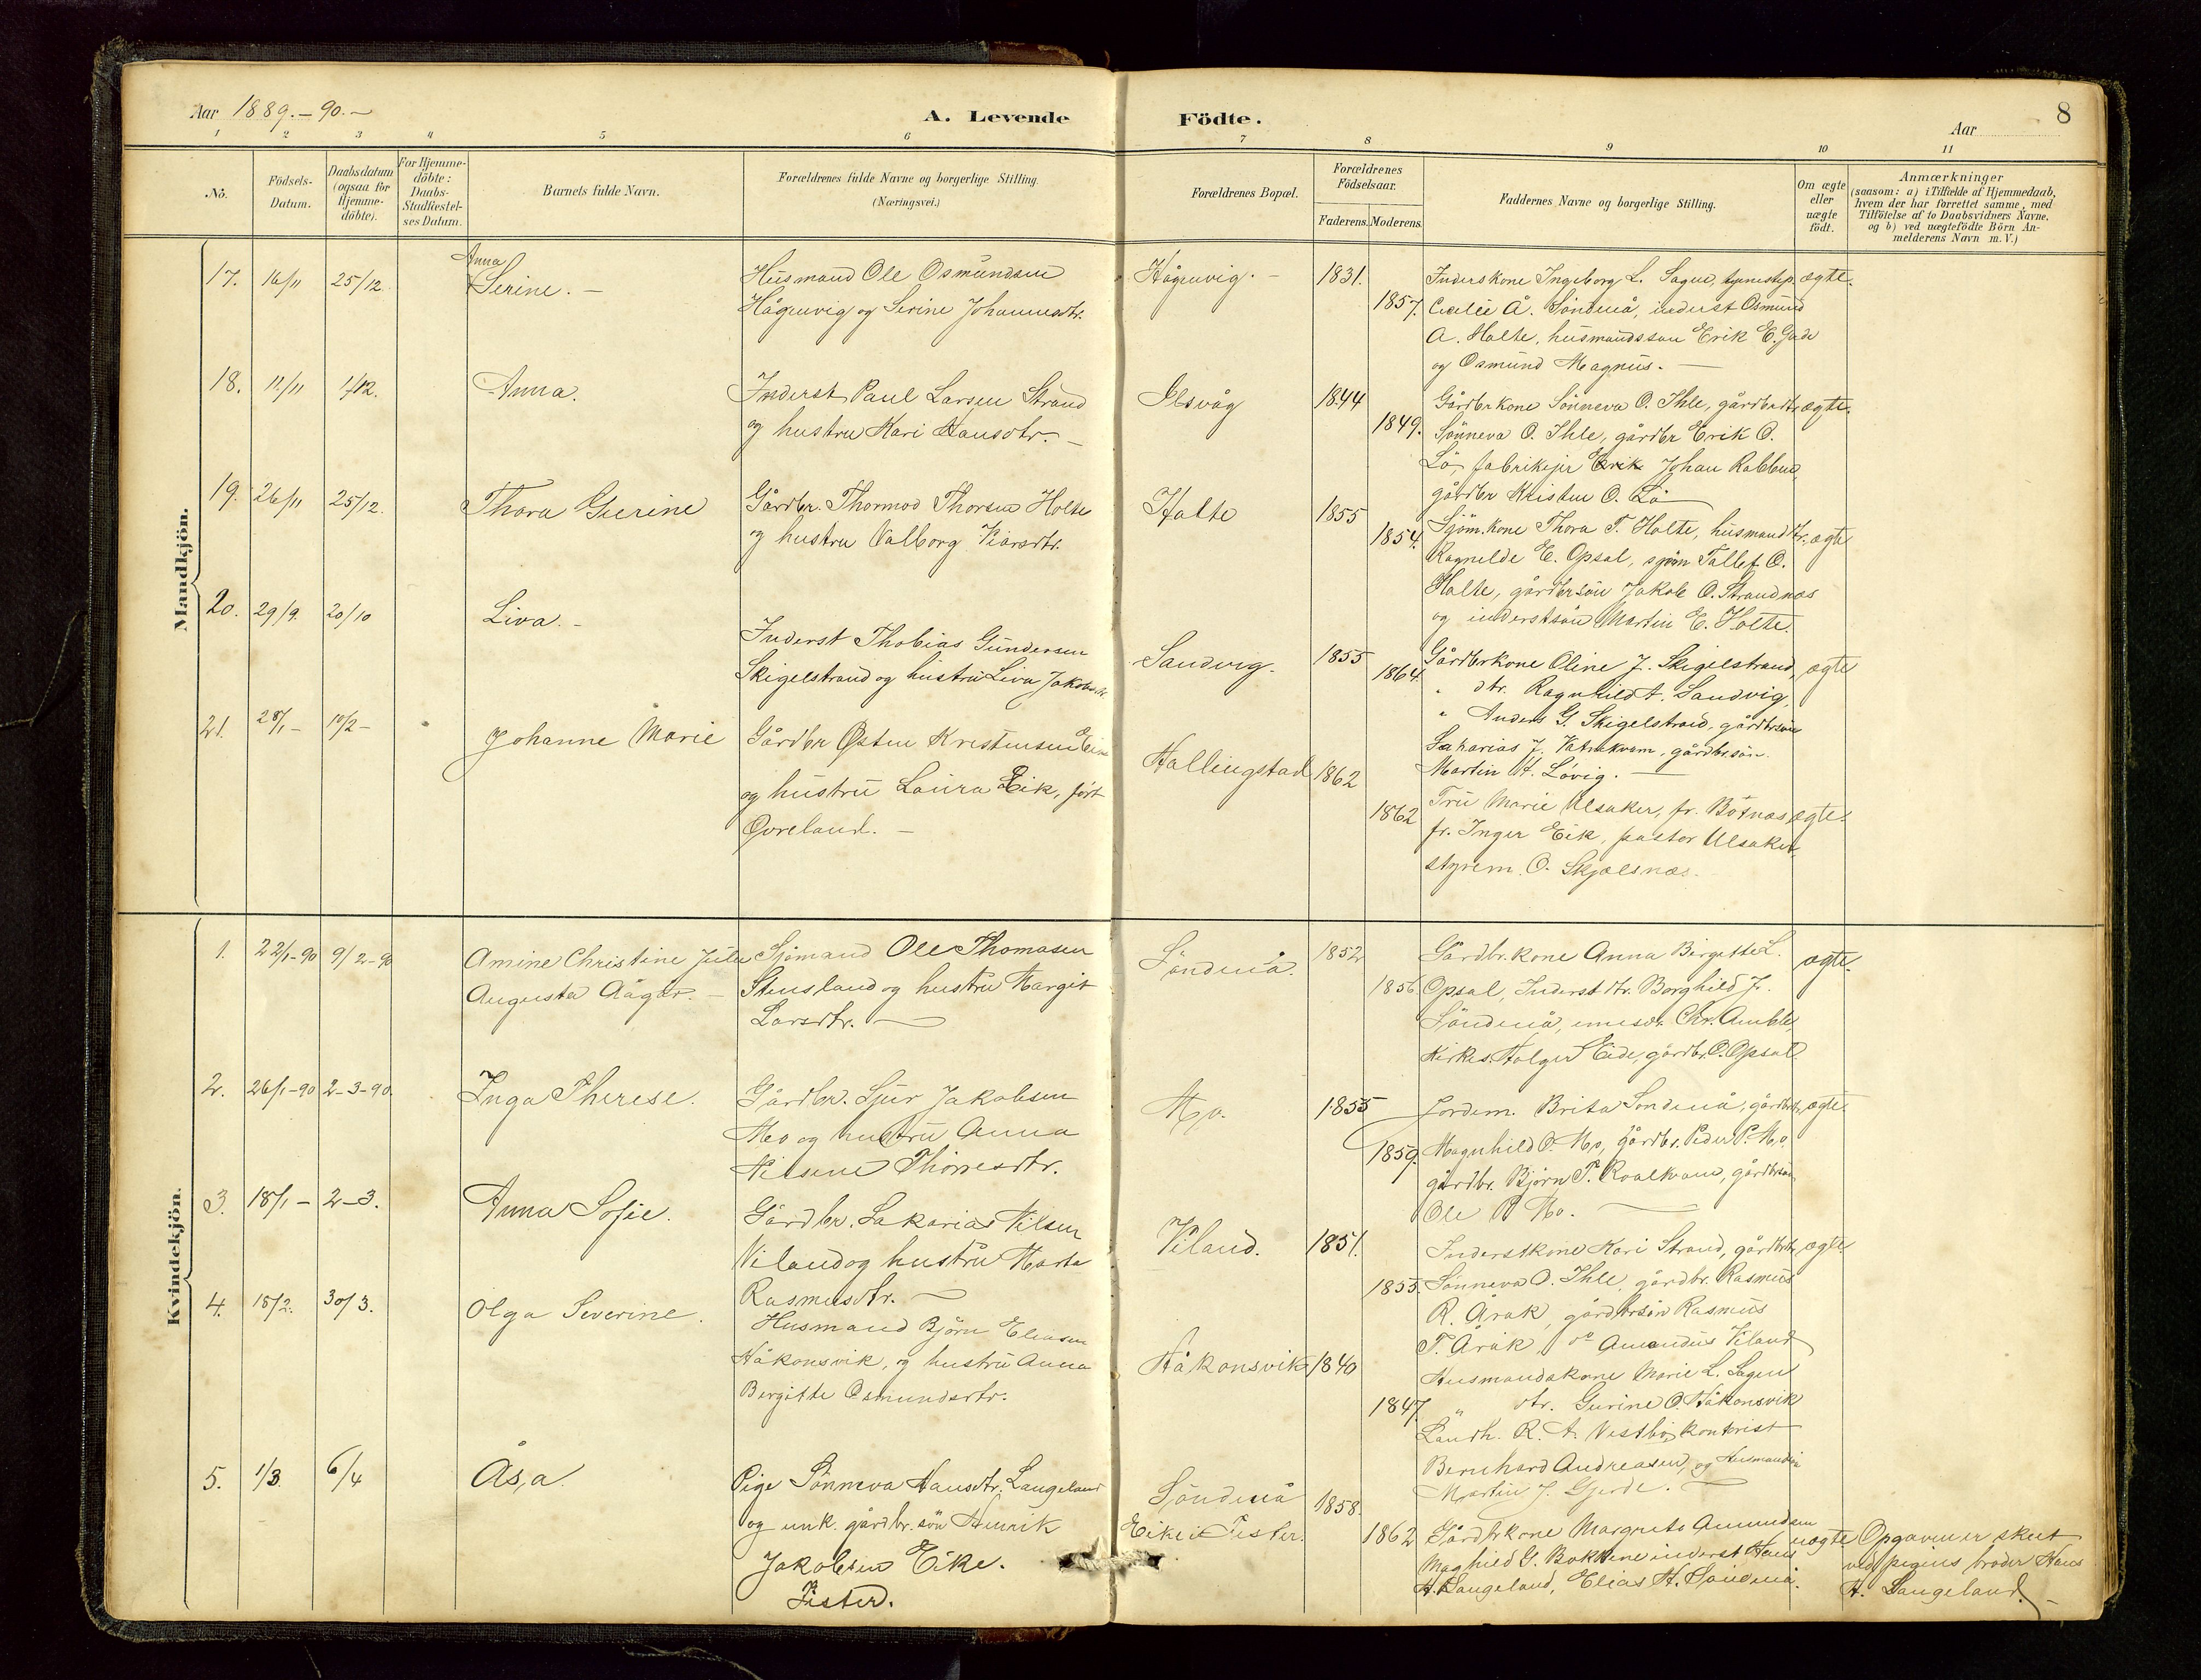 Aar 1889.-90.-
A. Levende
Födte.
Aar
8
1 2 3 4 5 6 7 8 9 10 11
No.
Födsels-
Datum.
Daabsdatum
(ogsaa for
Hjemme-
döbte).
For Hjemme-
döbte:
Daabs-
Stadfestel-
ses Datum.
Barnets fulde Navn.
Forældrenes fulde Navne og borgerlige Stilling.
(Næringsvei.)
Forældrenes Bopæl.
Forældrenes
Födselsaar.
Faderens. Moderens.
Faddernes Navne og borgerlige Stilling.
Om ægte
eller
uægte
födt.
Anmærkninger
(saasom: a) i Tilfælde af Hjemmedaab,
hvem der har forrettet samme, med
Tilföielse af to Daabsvidners Navne,
og b) ved uægtefödte Börn An-
melderens Navn m. V.)
Mandkjön.
17. 16/11 25/12.
Anna
Serine. -
Husmand Ole Osmundsen
Hågenvig og Serine Johannesdtr.
Hågenvig. -
1831.
1857.
Inderskone Ingeborg L. Sagen, tjenestep.
Å. Söndenå, inderst Osmund
A. Halte, husmandssøn Erik E. Gade
og Osmund Magnus. -
ægte.
18. 11/11 1/12.
Anna.
Inderst Paul Larsen Strand
og hustru Kari Hansdtr. -
Ilsvåg
1844
1849.
Gårdbrkone Sönneva O. Ihle, gårdbrdtr
Sönneva O. Ihle, gårdbr Erik O.
Lö, Johan
gårdbr Kristen O. Lö
ægte.
19. 26/11 25/12.
Thora Gurine
Gårdbr. Thormod Thorsen Holte
og hustru Valborg
Halte
1855
1854.
Sjöm.kone Thora T. Holte, husmandsdtr.
Ragnilde E. Opsal, sjöm Tollef O.
Holte, gårdbrsön Jakob O. Strandnæs
og inderstsön Martin E. Holte.
ægte
20. 29/9. 20/10
Liva. -
Inderst Thobias Gundersen
Skigelstrand og hustru Liva Jakobsdtr.
Sandvig.
1855
1864.
Gårdbrkone Oline J. Skigelstrand,
" dtr. Ragnhild A. Sandvig,
" Anders G. Skigelstrand, gårdbrsön
Sakarias J. Vatnakvam, gårdbrsön
Martin H. Lövig. -
ægte
21. 28/1 - 10/2 -
Johanne Marie
Gårdbr Østen Kristensen
og hustru Laura Eik, født
Qvreland. -
Hallingstad
1862
1862
Fru Marie Ulsaker, fr. Bötnæs
fr. Inger Eik, pastor Ulsaker,
styrem. O. Skjælsnæs.
ægte.
Kvindekjön.
1. 22/1-90 9/2-90
Amine Christine Julie
Augusta Aågar. -
Sjömand Ole Thomasen
Stensland og hustru Margit
Larsdtr. -
Söndenå.
1852
1856.
Gårdbr.kone Anna Birgitte L.
Opsal, Inderst dtr. Borghild J.
Söndenå, Chr. Amble,
Kirkes. Holger Eide, gårdbr. O. Opsal
ægte.
2. 26/1-90 2-3-90.
Inga Therese.
Gårdbr. Sjur Jakobsen
Mo og hustru Anna
Nilsine Thorresdtr.
Mo.
1855
1859.
Jordem. Brita Söndenå, gårdbrdtr,
Magnhild O. Mo, gårdbr. Peder P. Mo,
gårdbr. Björn T. Roalkvam, gårdbrsön
Ole P. Mo.
ægte.
3. 18/1 - 2-3.
Anna Sofie.
Gårdbr. Sakarias Nilsen
Viland og hustru Marta
Rasmusdtr. -
Viland.
1851.
1855.
Inderstkone Kari Strand, gårdbrdtr,
Sönneva O. Ihle, gårdbr. Rasmus
R. Åråk, gårdbrsön Rasmus
T. Åråk, do Amandus Viland
ægte
4. 15/2. 30/3.
Olga Severine.
Husmand Björn Eliasen
Håkonsvik, og hustru Anna
Bergitte Osmundsdtr.
Håkonsvik
1840
1847.
Husmandskone Marie L. Sagen
" dtr. Gurine O. Håkonsvik
Landh. R. A. Vestbö, kontorist
Bernhard Andreasen, og Husmandssön
Martin J. Gjerde. -
5. 1/3 6/4
Åsa
Pige Sönneva Hansdtr. Langeland
og unk. gårdbr. sön Henrik
Jakobsen Eike.
Fister.
Söndenå
Eike i Fister.
1858.
1862
Gårdbrkone Margreta Amundsen
Maghild G. inderst Hans
H. Langeland, Elias H. Söndenå.
uægte
Opgaven er skeet
ved pigens broder Hans
H. Langeland. -